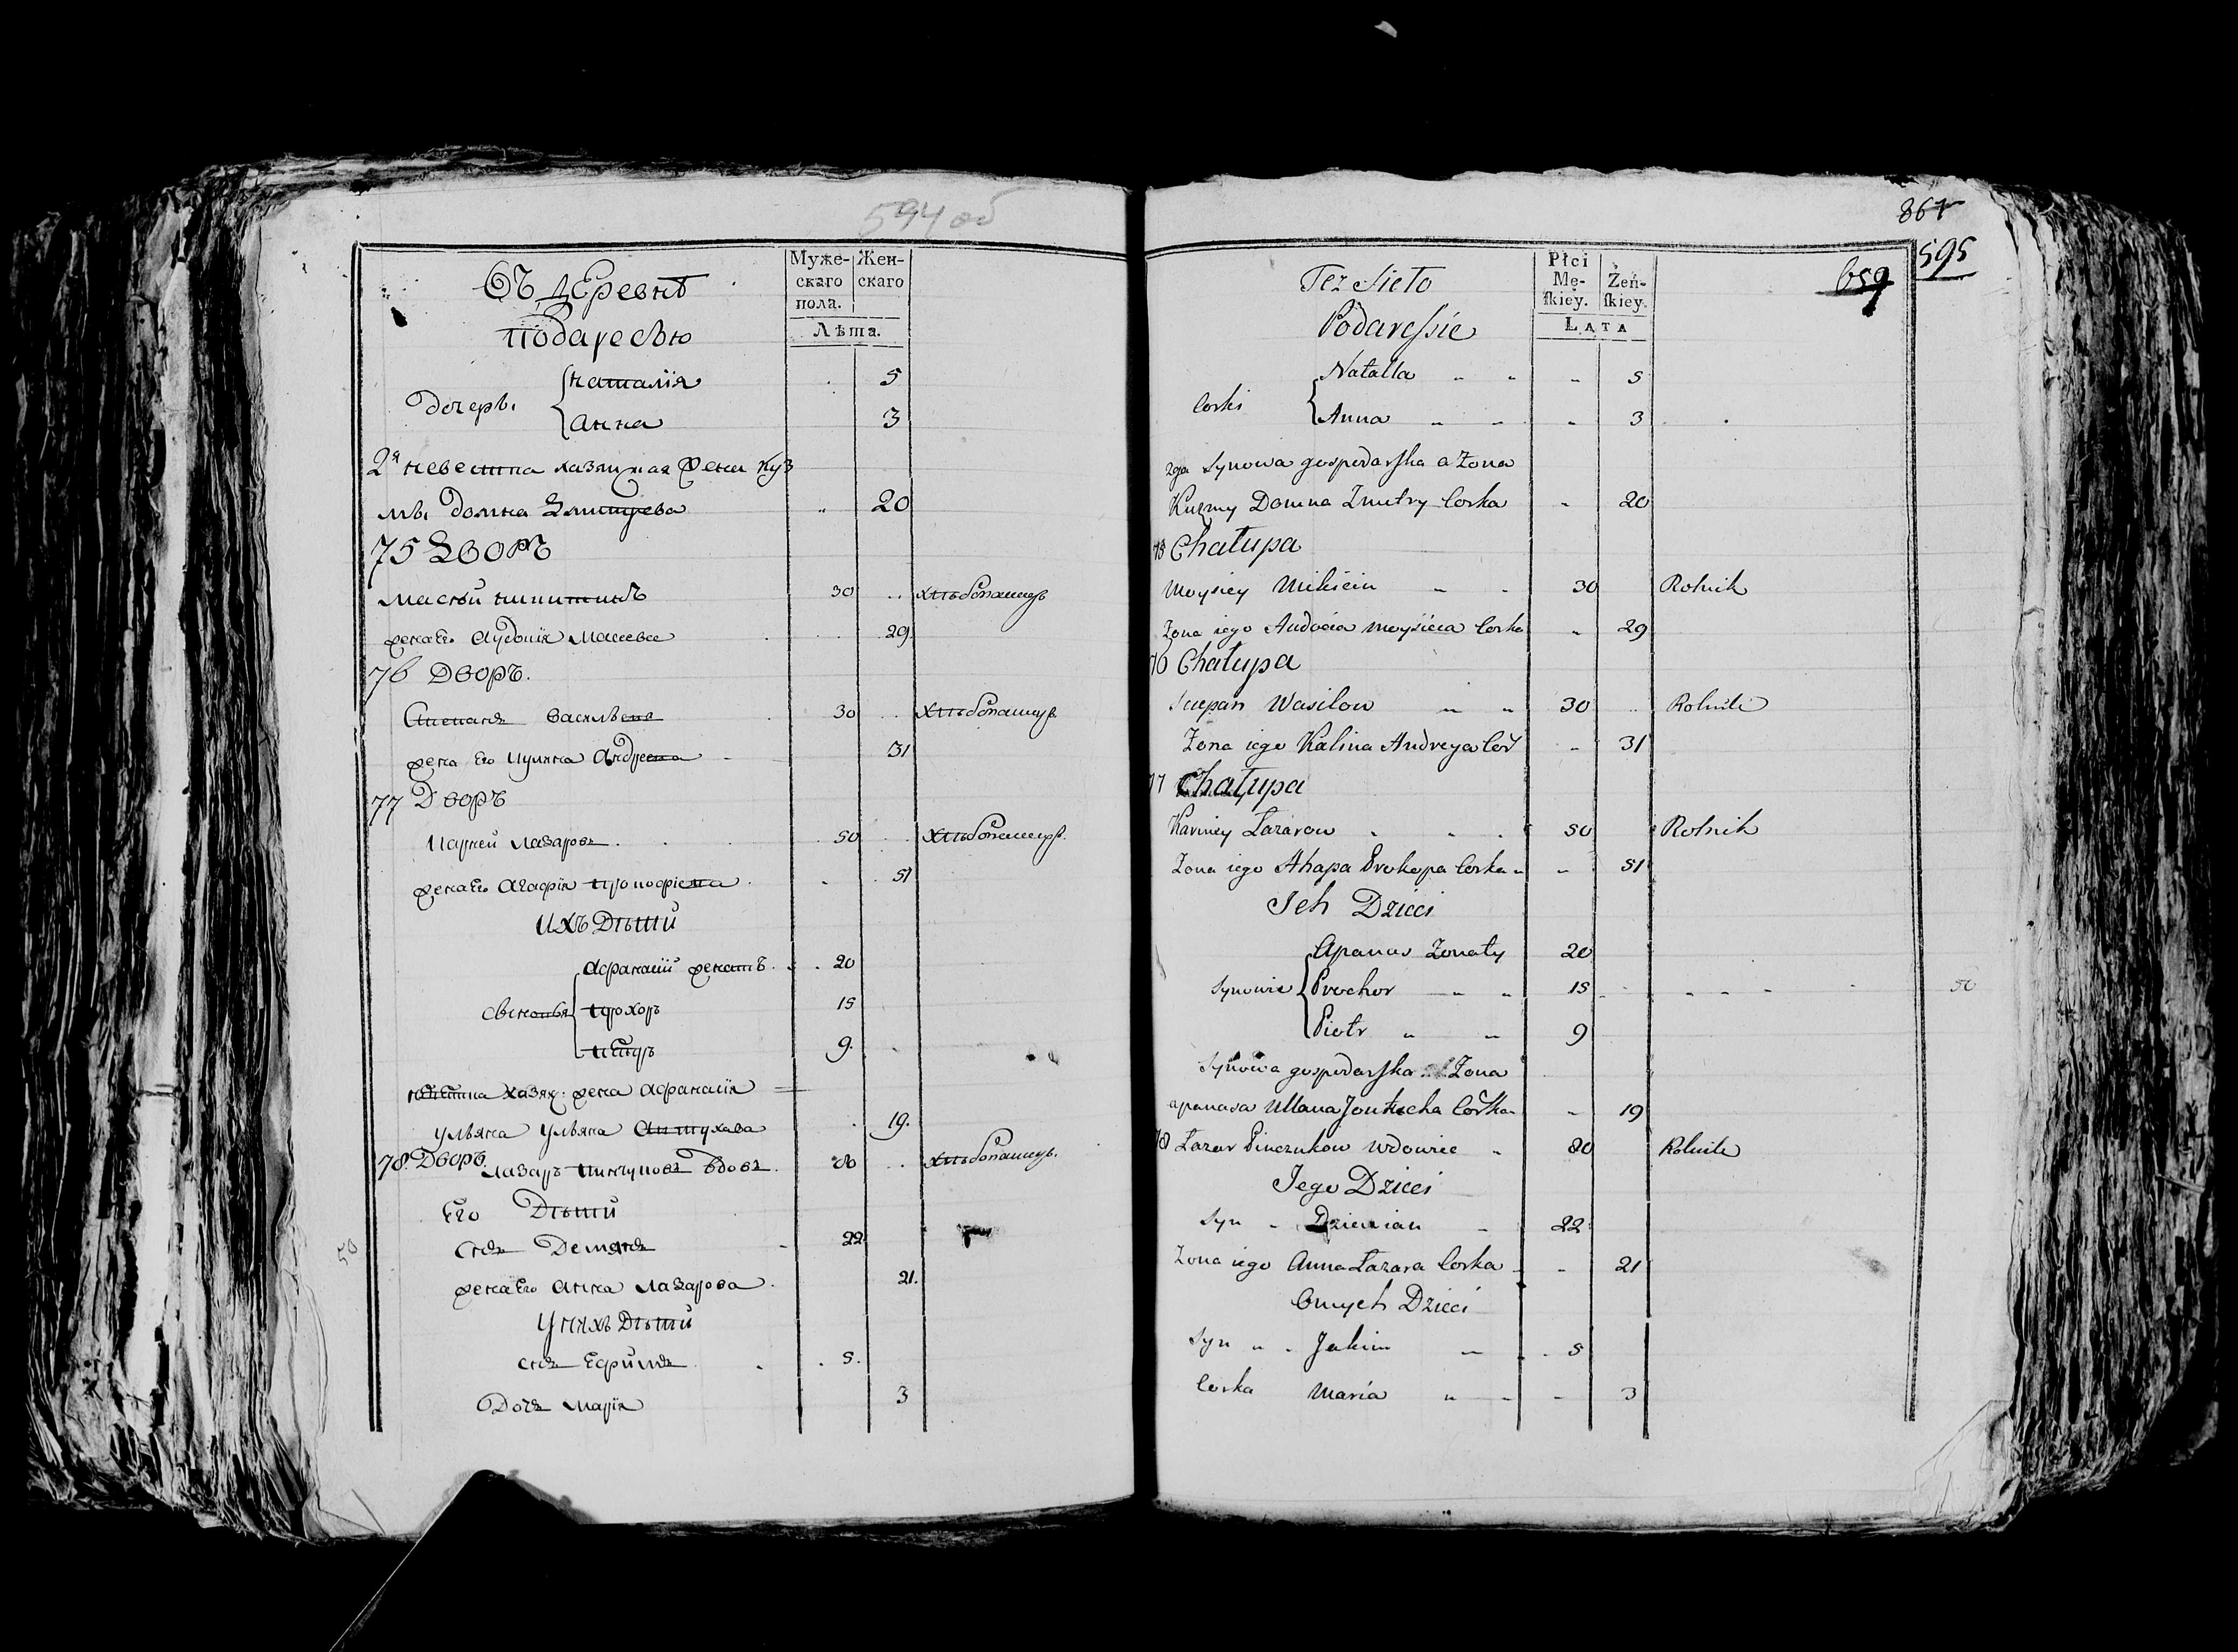 594 об
Въ деревнѣ
Подаресью
Муже-
скаго
пола.
Жен-
скаго
Лѣта.
дочерѣ.
Наталія 5
Анна 3
2я невестка хазяйская жена Куз
мы Домна Змитрева " 20
75 Дворъ
30 .. хлѣбопашецъ
жена Его Аудотія 29.
76 Дворъ.
Степанъ Васильевъ 30 .. хлѣбопашецъ
жена Его Андреева 31
77 Дворъ
Лазаровъ 50 .. хлѣбопашецъ.
жена Его Агафія 51
Ихъ Дѣти
Афанасій женатъ. 20
сыновья Прохоръ 15
Петръ 9.
невестка хазяй. жена Афанасія
Ульяна Ульяна 19.
78. Дворъ. Лазаръ Пинчуковъ вдовъ. 80 .. хлѣбопашецъ.
Его Дѣти
Снъ Демянъ 22
жена Его Анна Лазарова 21.
У нихъ Дѣти
снъ Ефимъ 5.
Дочь Марія 3
50
861
595
659
Też Sieło
Podaressie
Płci
Mę-
skiey.
Żeń-
skiey.
LATA
Corki
Natalla " " " 5
Anna " " " 3
2ga Synowa gospodarska a Zona
Kuzmy Domna Zmitry Corka " 20
75 Chałupa
Moysiey Mikicin " " 30 Rolnik
Zona iego Audocia Moysieia Corka " 29
76 Chałupa
Sciepan Wasilow " " 30 .. Rolnik
Zona iego Kalina Andreya Cor " 31
77 Chałupa
Karniey Łazarow 50 Rolnik
Zona iego Ahapa Prokopa Corka " " 51
Ich Dzieci
Apanas Zonaty 20
Synowie Prochor " " 15
Piotr " " 9
50
Synowa gospodarska Zona
apanasa Ullana Corka " 19
78 Łazar Pinczukow Wdowiec " 80 Rolnik
Iego Dzieci
Syn " Dziemian " 22
Zona iego Anna Łazara Corka " " 21
Onych Dzieci
Syn " " Jakim " 5
Corka Maria " " " 3